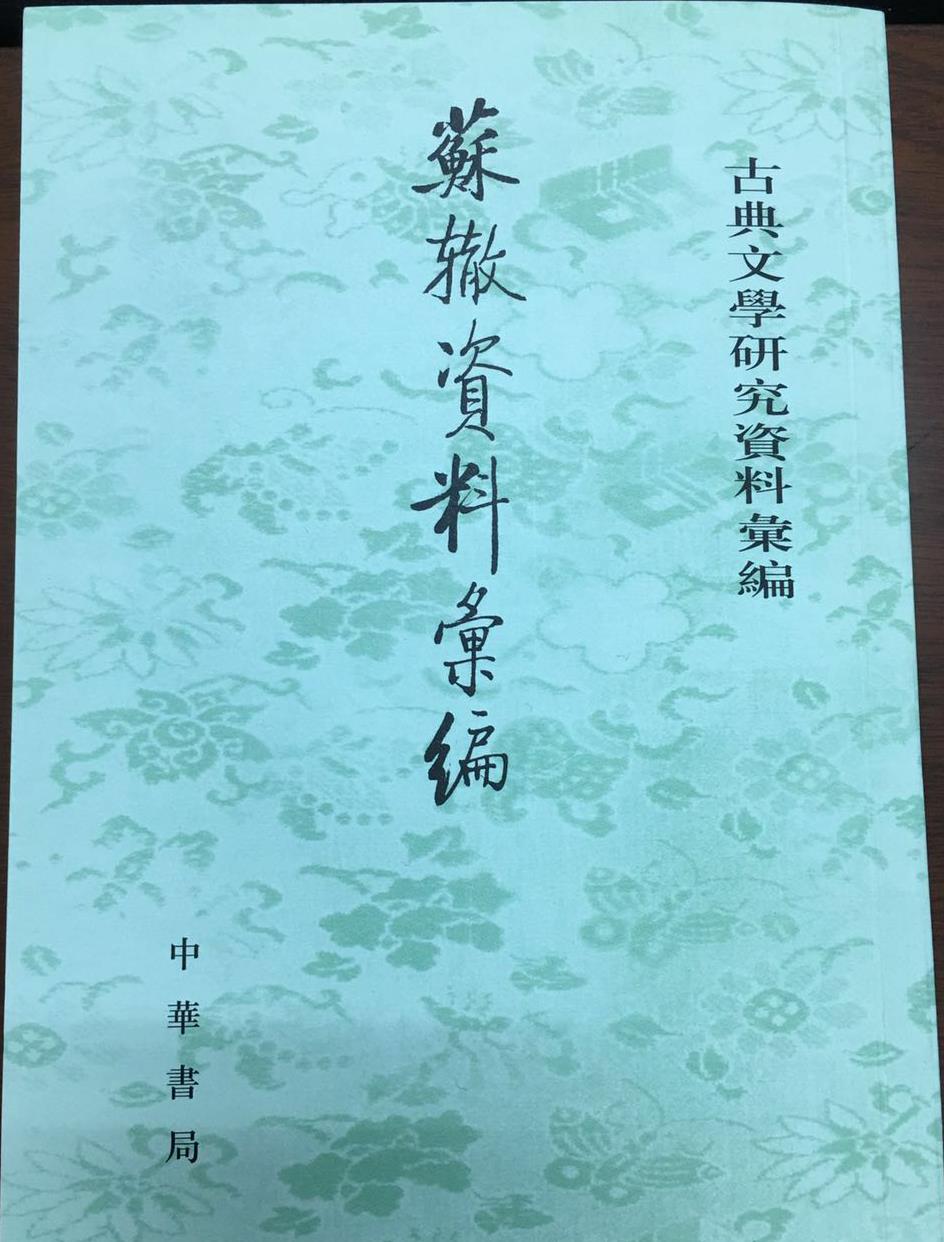 古典文學研究資料彙編
蘇轍資料彙編
中華書局